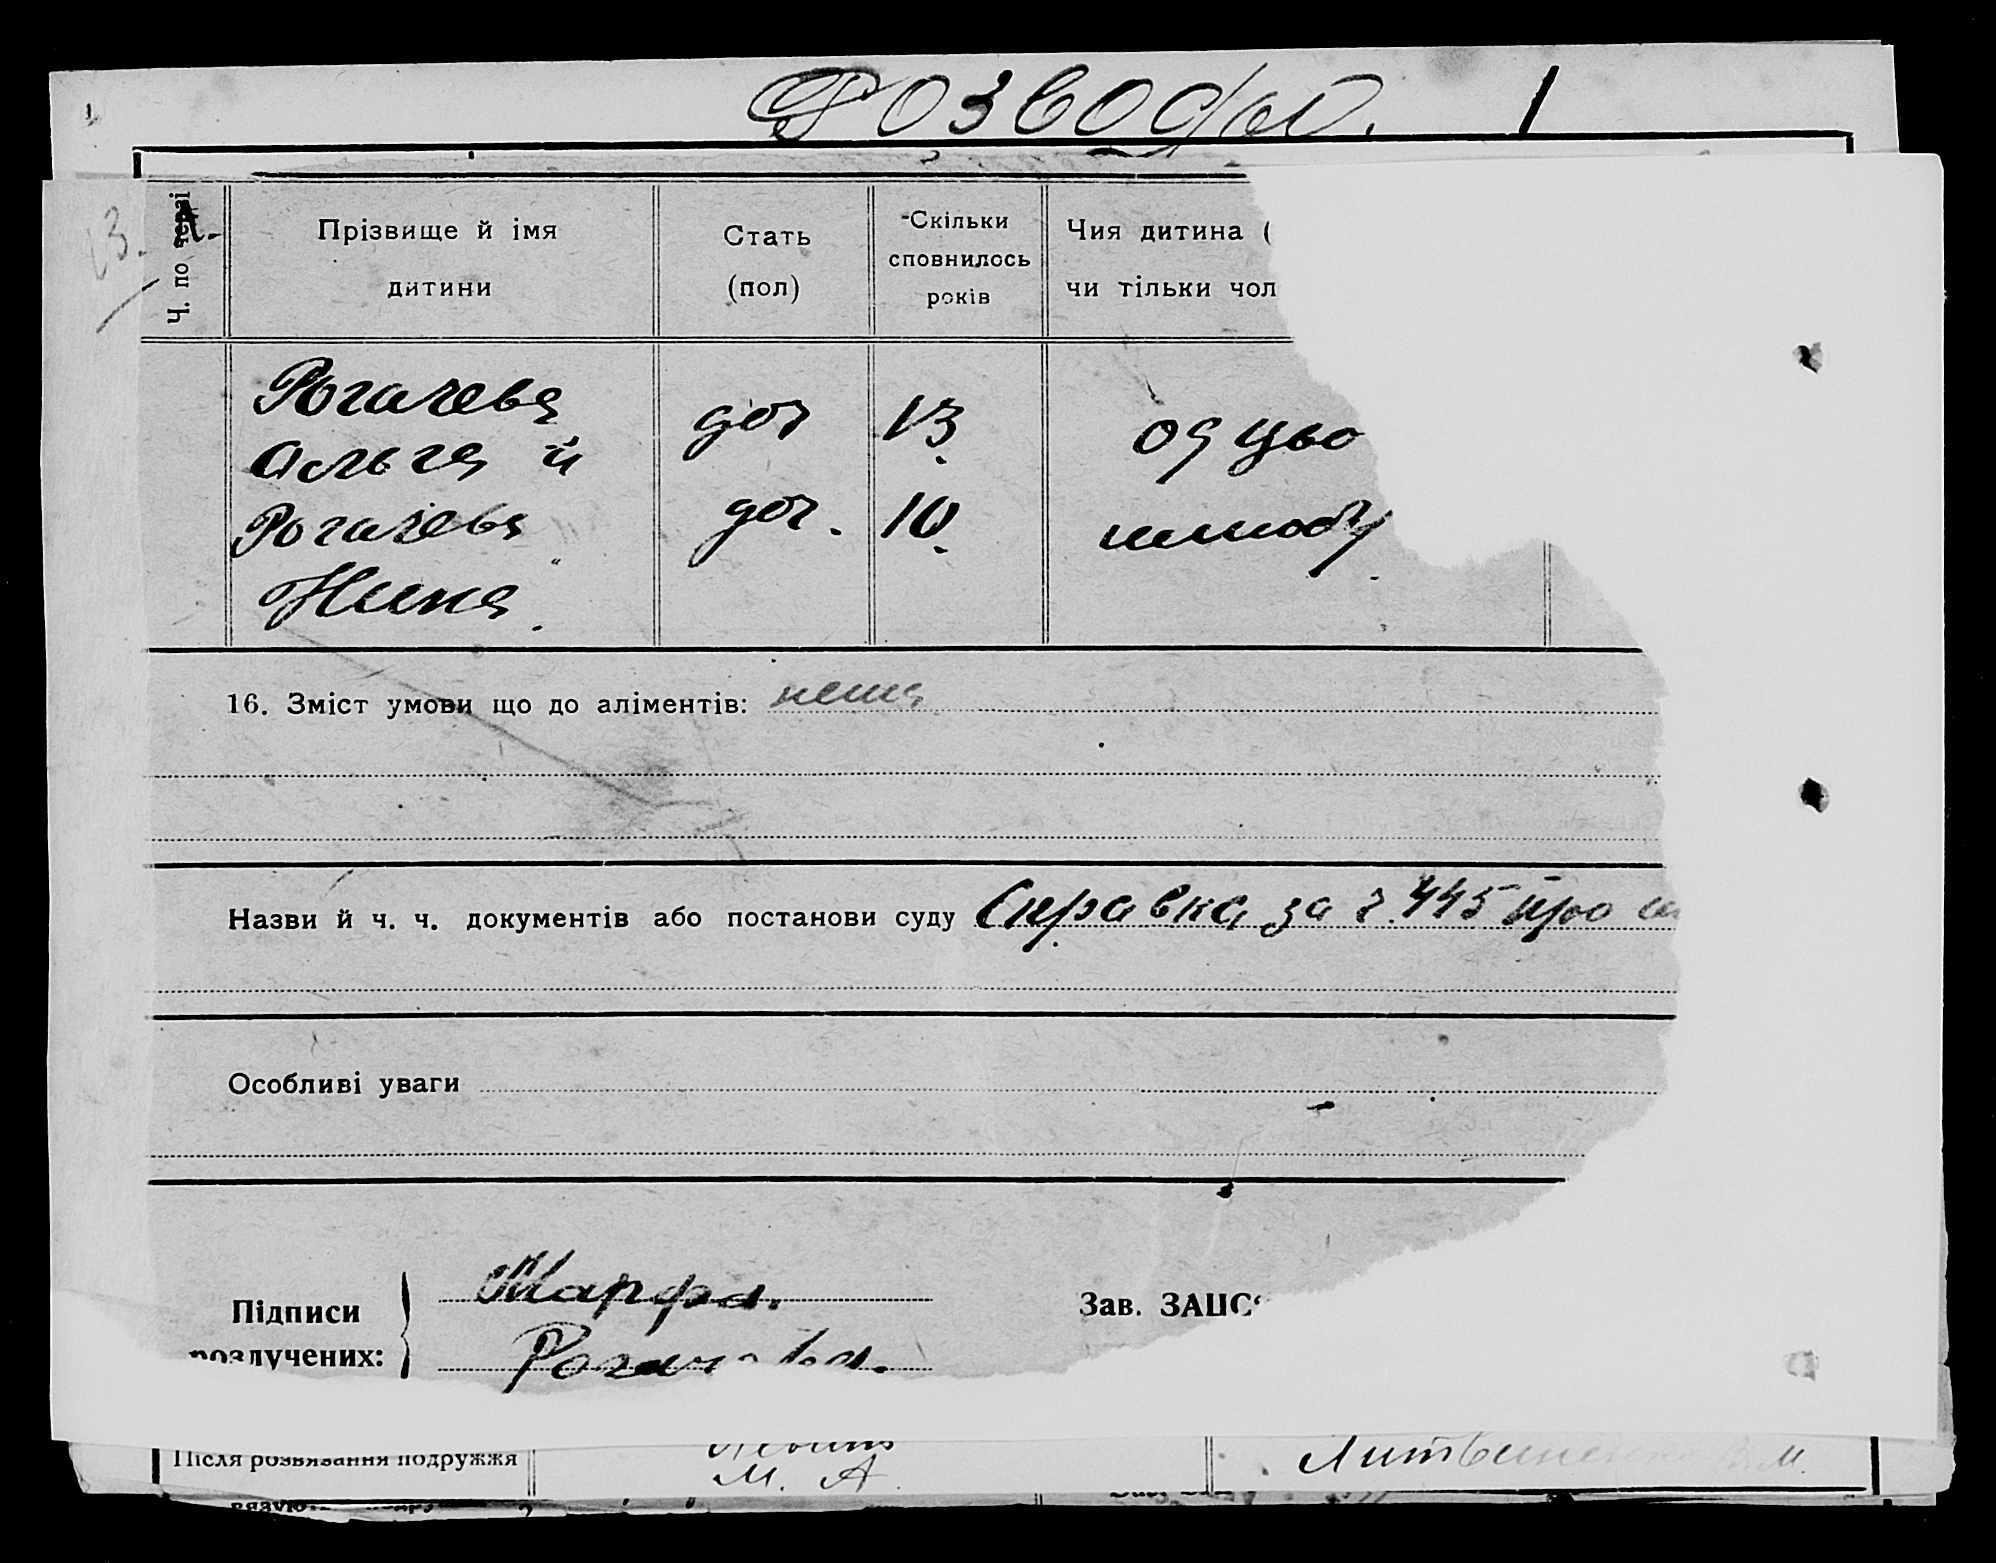 Розводы. 1
Ч. по черзі
Прізвище й імя
дитини
Стать
(пол)
Скільки
сповнилось
років
Чия дитина (
чи тільки чол
13.
Рогачева
Ольга й
Рогачева
Нина.
доч 13.
доч. 10.
оя цьо
шлюбу
16. Зміст умови що до аліментів: нема
Назви й ч. ч. документів або постанови суду Справка за ч. 445 про
Особливі уваги
Підписи
розлучених:
Марфа.
Рогачева.
Зав. ЗАЦС
Після розвязання подружжя
М. А.